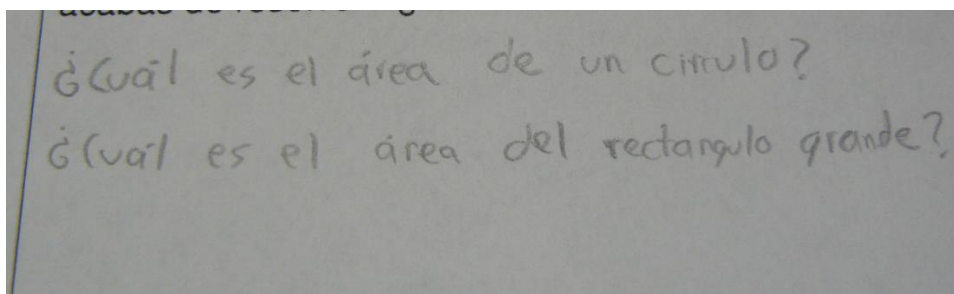 ¿Cuál es el área de un circulo?
¿Cuál es el área del rectangulo grande?